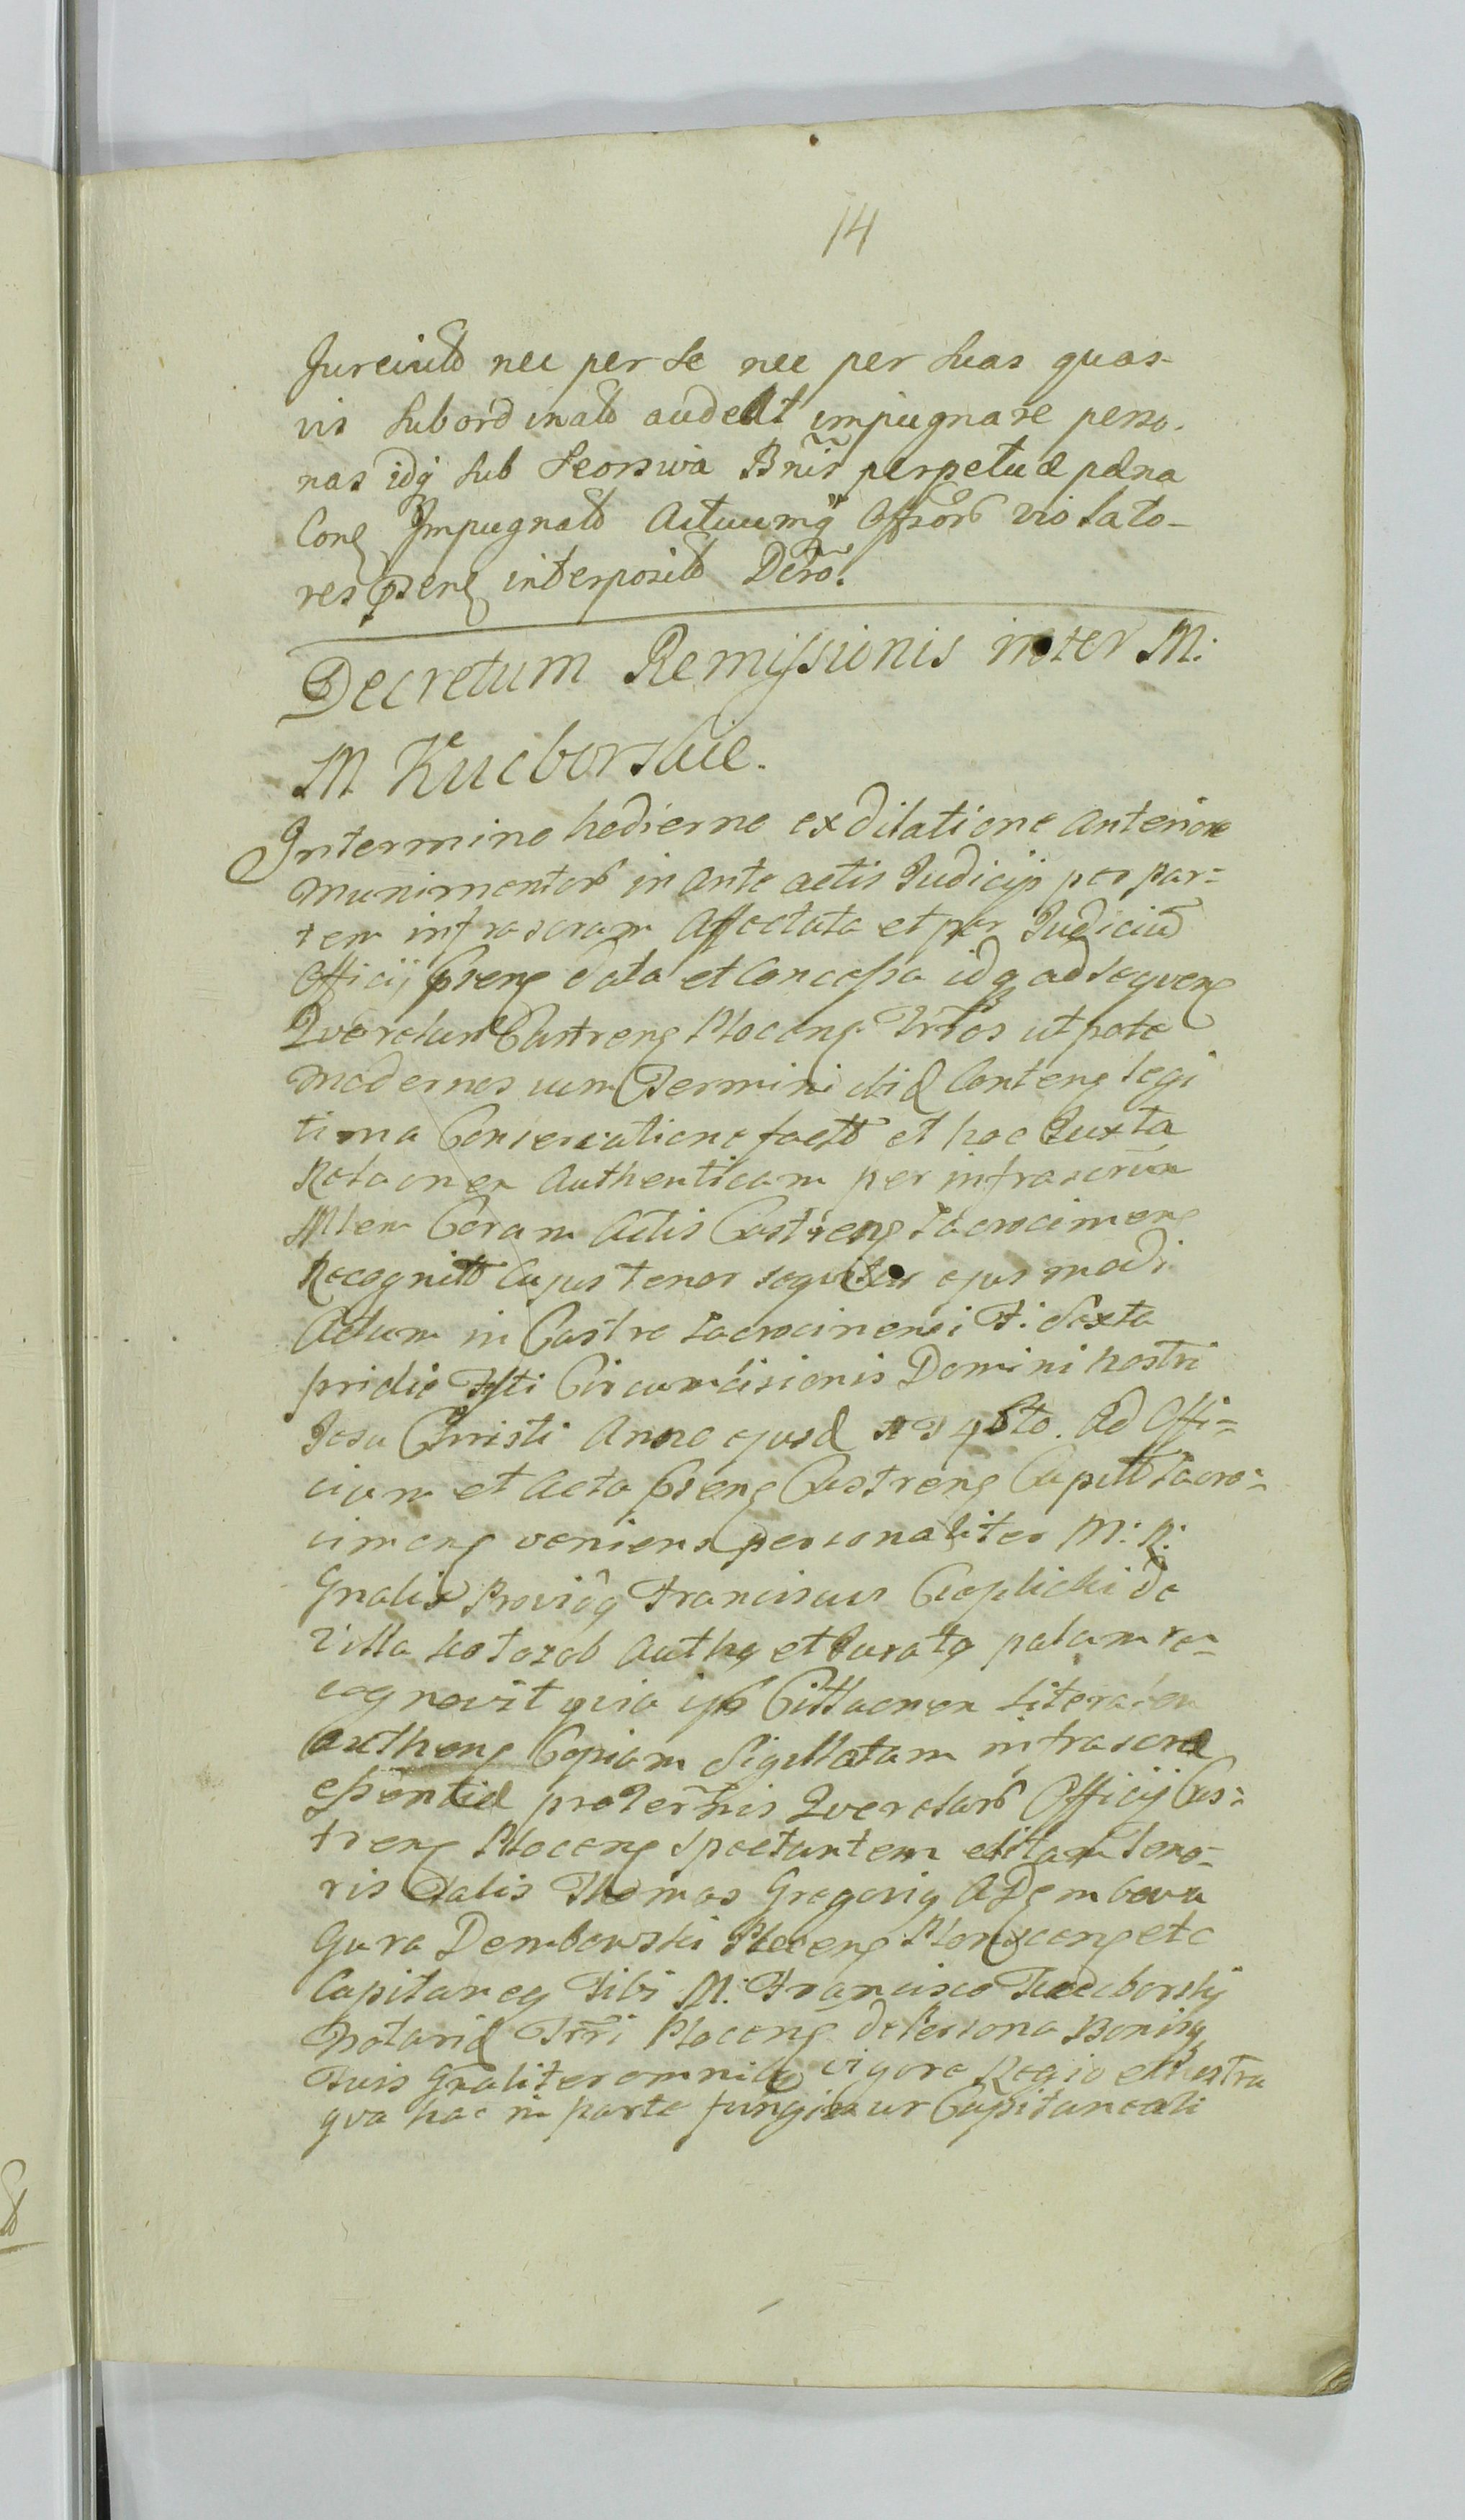 14
nec per se nec per suas quas-
vis subordinatb audeat impugnare perso-
nas idq sub seorsiva Bnis perpetuæ pæna
Impugnatb Actuumq Offior violato-
res pseng interpositb Dcro.
Decretum Remissionis inter M:
M Kucborskie.
In termino hodierno ex dilatione anteriore
munimentor in ante actis Judicijs per par=
tem infrascram Affectata et per Judiciu
Officij pseng data et Concessa idq ad seqveng
Qverelam Castreng Ploceng utpote
modernos cum Termini Conteng legi
tima Conservatione factb et hoc Juxta
Relaonem Authenticam per infrascrum
Mlem Coram Actis Castreng Zacrocimeng
Recognitb Cujus tenor sequitur ejusmodi
Actum in Castro Zacrocimensi F: Sexta
pridie Fsti Circumcisionis Domini nostri
Jesu Christi Anno ejusd Ad Offi=
cium et Acta pseng Castreng Capitb Zacro=
cimeng veniens personaliter M: R:
Gnalis Proviosq Franciscus Czaplicki de
Villa Authg et Juratg palam re=
cognovit qvia ipse Cittaonem Literalem
Autheng Copiam Sigillatam infrascræ
essentiæ pro Termnis Qverelarb Officij Cas=
treng Ploceng Spectantem editam teno=
ris Talis Thomas Gregorig A Dembowa
Gura Dembowski Ploceng etc
Capitaneg Tibi M: Francisco Kucborskij
Notariæ Trri Ploceng de Persona Bonisq
Tuis Gnaliter omnibg vigore Regio et Nostra
qva hac in parte fungimur Capitaneali